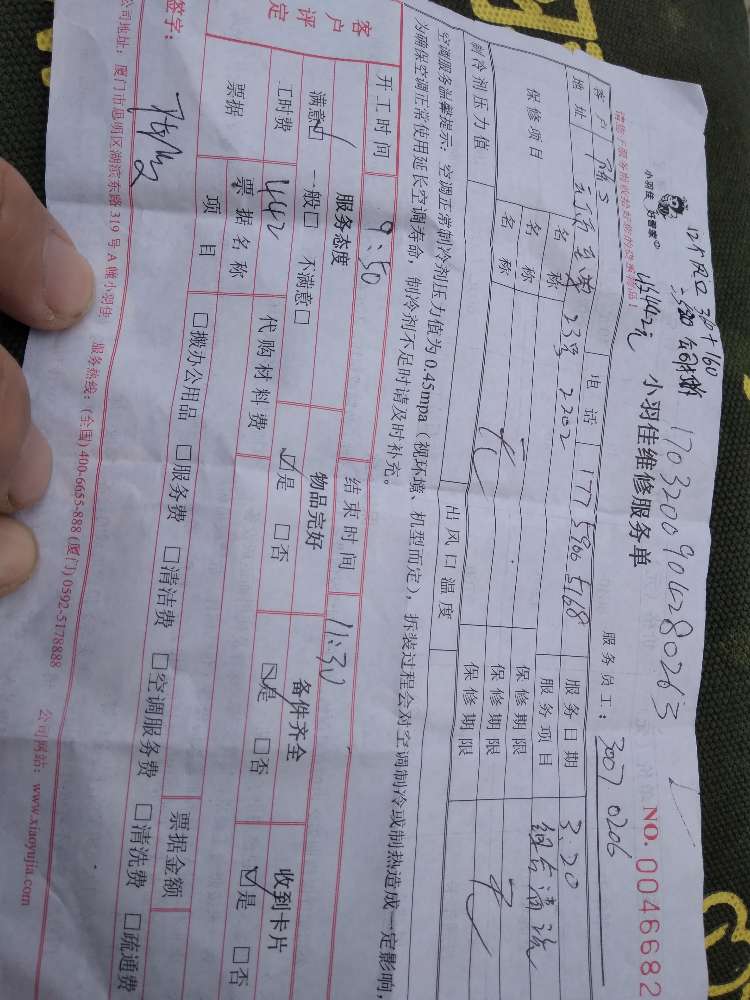 12个风口 30+160
小羽佳 好管家
442元
1703200904280263
小羽佳维修服务单
NO. 0046682
请您于服务前收拾好您的贵重物品!
服务员工: 3007 0206
客户
电话 177 5966 5168
服务日期 3.20
地址
23号 2202
服务项目
清洗
保修项目
名称
保修期限
名称
保修期限 无
名称 无
保修期限
制冷剂压力值
出风口温度
空调服务温馨提示:空调正常制冷剂压力值为0.45mpa(视环境、机型而定),拆装过程会对空调制冷或制热造成一定影响,
为确保空调正常使用延长空调寿命,制冷剂不足时请及时补充。
开工时间 9:50
结束时间 11:30
客户评定
服务态度
物品完好
备件齐全
收到卡片
满意☑ 一般□ 不满意□
☑是 □否
☑是 □否
☑是 □否
工时费 442
代购材料费
票据
票据名称
票据金额
项目
□搬办公用品 □服务费 □清洁费 □空调服务费 □清洗费 □疏通费
签字:
公司地址:厦门市思明区湖滨东路319号A幢小羽佳 服务热线:(全国)400-6655-888 (厦门)0592-5178888 公司网站:www.xiaoyujia.com